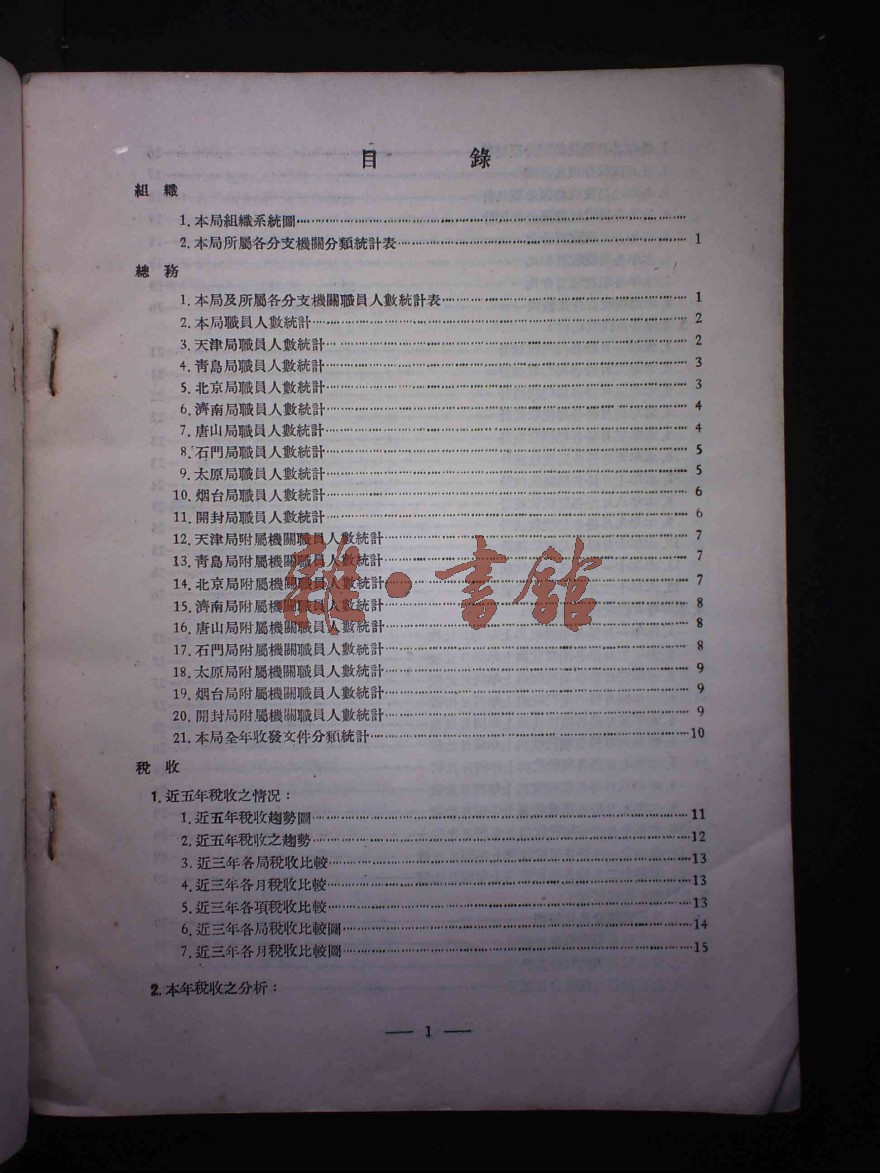 目 錄
組 織
1. 本局組織系統圖
2. 本局所屬各分支機關分類統計表 1
總 務
1. 本局及所屬各分支機關職員人數統計表 1
2. 本局職員人數統計 2
3. 天津局職員人數統計 2
4. 靑島局職員人數統計 3
5. 北京局職員人數統計 3
6. 濟南局職員人數統計 4
7. 唐山局職員人數統計 4
8. 石門局職員人數統計 5
9. 太原局職員人數統計 5
10. 烟台局職員人數統計 6
11. 開封局職員人數統計 6
12. 天津局附屬機關職員人數統計 7
13. 靑島局附屬機關職員人數統計 7
14. 北京局附屬機關職員人數統計 7
15. 濟南局附屬機關職員人數統計 8
16. 唐山局附屬機關職員人數統計 8
17. 石門局附屬機關職員人數統計 8
18. 太原局附屬機關職員人數統計 9
19. 烟台局附屬機關職員人數統計 9
20. 開封局附屬機關職員人數統計 9
21. 本局全年收發文件分類統計 10
雜·書館
稅 收
1. 近五年稅收之情况：
1. 近五年稅收趨勢圖 11
2. 近五年稅收之趨勢 12
3. 近三年各局稅收比較 13
4. 近三年各月稅收比較 13
5. 近三年各項稅收比較 13
6. 近三年各局稅收比較圖 14
7. 近三年各月稅收比較圖 15
2. 本年稅收之分析：
— 1 —